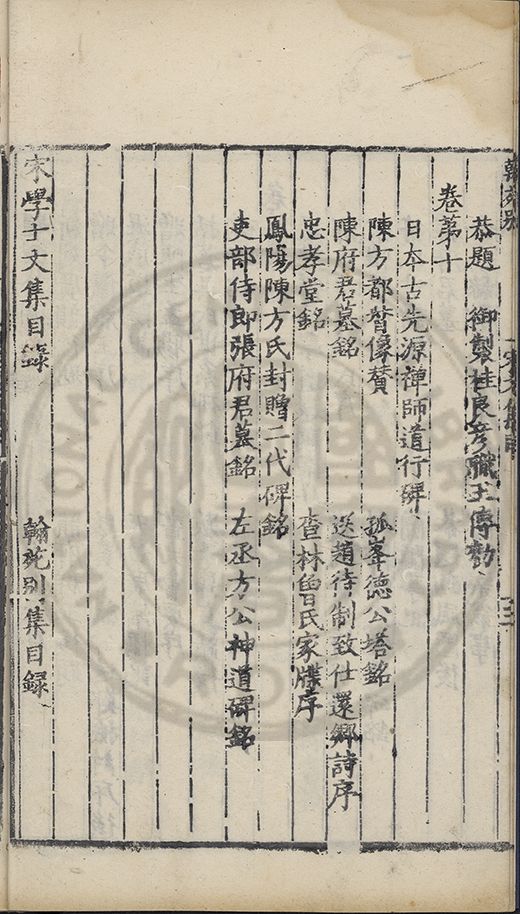 恭題 御製桂彥良職王傅勅
卷第十
日本古先源禪師道行碑
陳方都督像贊 孤峯德公塔銘
陳府君墓銘 送趙待制致仕還鄉詩序
忠孝堂銘 查林曾氏家牒序
鳳陽陳方氏封贈二代碑銘
吏部侍郎張府君墓銘 左丞方公神道碑銘
宋學士文集目錄 翰苑別集目録